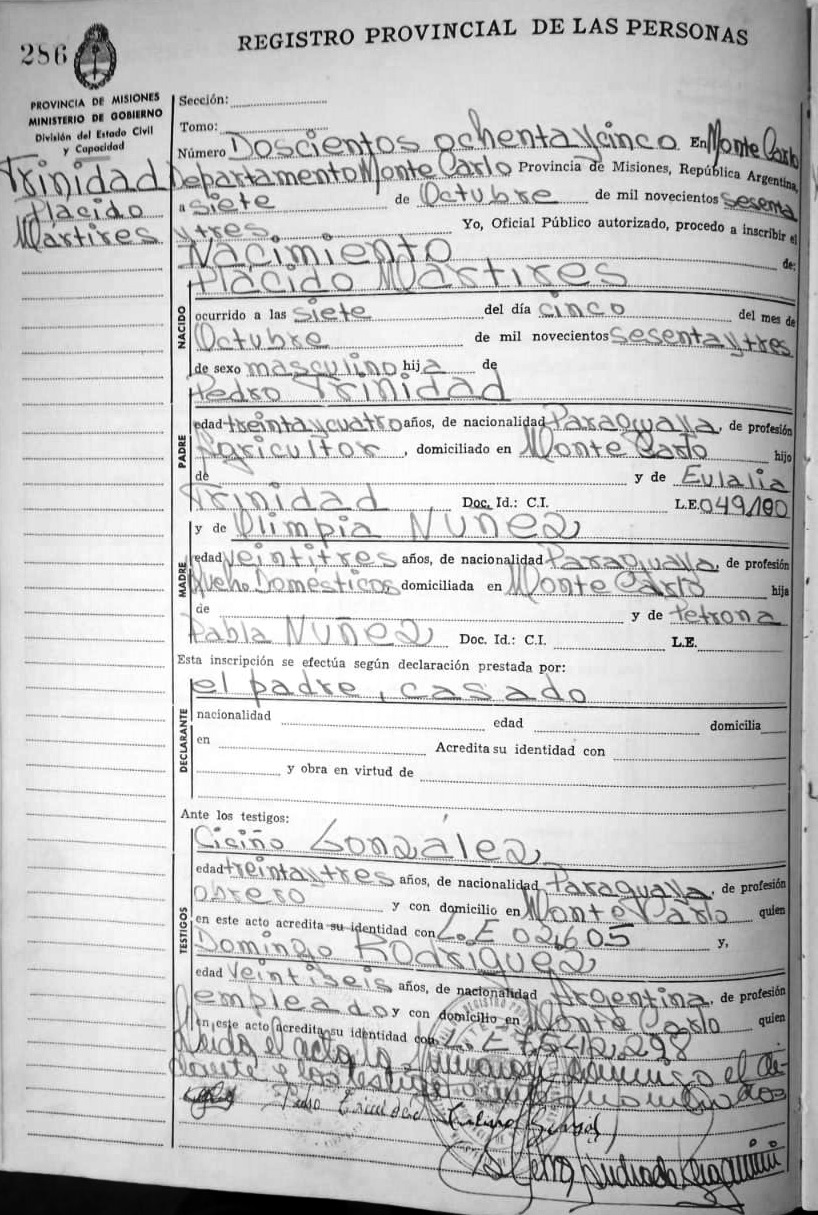 286
REGISTRO PROVINCIAL DE LAS PERSONAS
PROVINCIA DE MISIONES
MINISTERIO DE GOBIERNO
División del Estado Civil
y Capacidad
Trinidad
Plácido
Mártires
Sección:
Tomo:
Número Doscientos ochenta y cinco En Monte Carlo
Departamento Monte Carlo Provincia de Misiones, República Argentina,
a siete de Octubre de mil novecientos sesenta
y tres. Yo, Oficial Público autorizado, procedo a inscribir el
Nacimiento de:
Plácido Mártires
NACIDO
ocurrido a las siete del día cinco del mes de
Octubre de mil novecientos sesenta y tres
de sexo masculino hija de
Pedro Trinidad
PADRE
edad treinta y cuatro años, de nacionalidad Paraguaya, de profesión
Agricultor, domiciliado en Monte Carlo hijo
de y de Eulalia
Trinidad Doc. Id.: C.I. L.E. 049,100
y de Olimpia Nuñez
MADRE
edad veintitres años, de nacionalidad Paraguaya, de profesión
Domesticos, domiciliada en Monte Carlo hija
de y de Petrona
Pabla Nuñez Doc. Id.: C.I. L.E.
Esta inscripción se efectúa según declaración prestada por:
el padre, casado
DECLARANTE
nacionalidad edad domicilia
en Acredita su identidad con
y obra en virtud de
Ante los testigos:
Ciciño González
TESTIGOS
edad treinta y tres años, de nacionalidad Paraguaya, de profesión
obrero y con domicilio en Monte Carlo quien
en este acto acredita su identidad con L.E 02,605 y,
Domingo Rodriguez
edad veintiseis años, de nacionalidad Argentina, de profesión
empleado y con domicilio en Monte Carlo quien
en este acto acredita su identidad con L.E 7,542,298
Leida el acta la firman conmigo el de-
clarante y los testigos nombrados